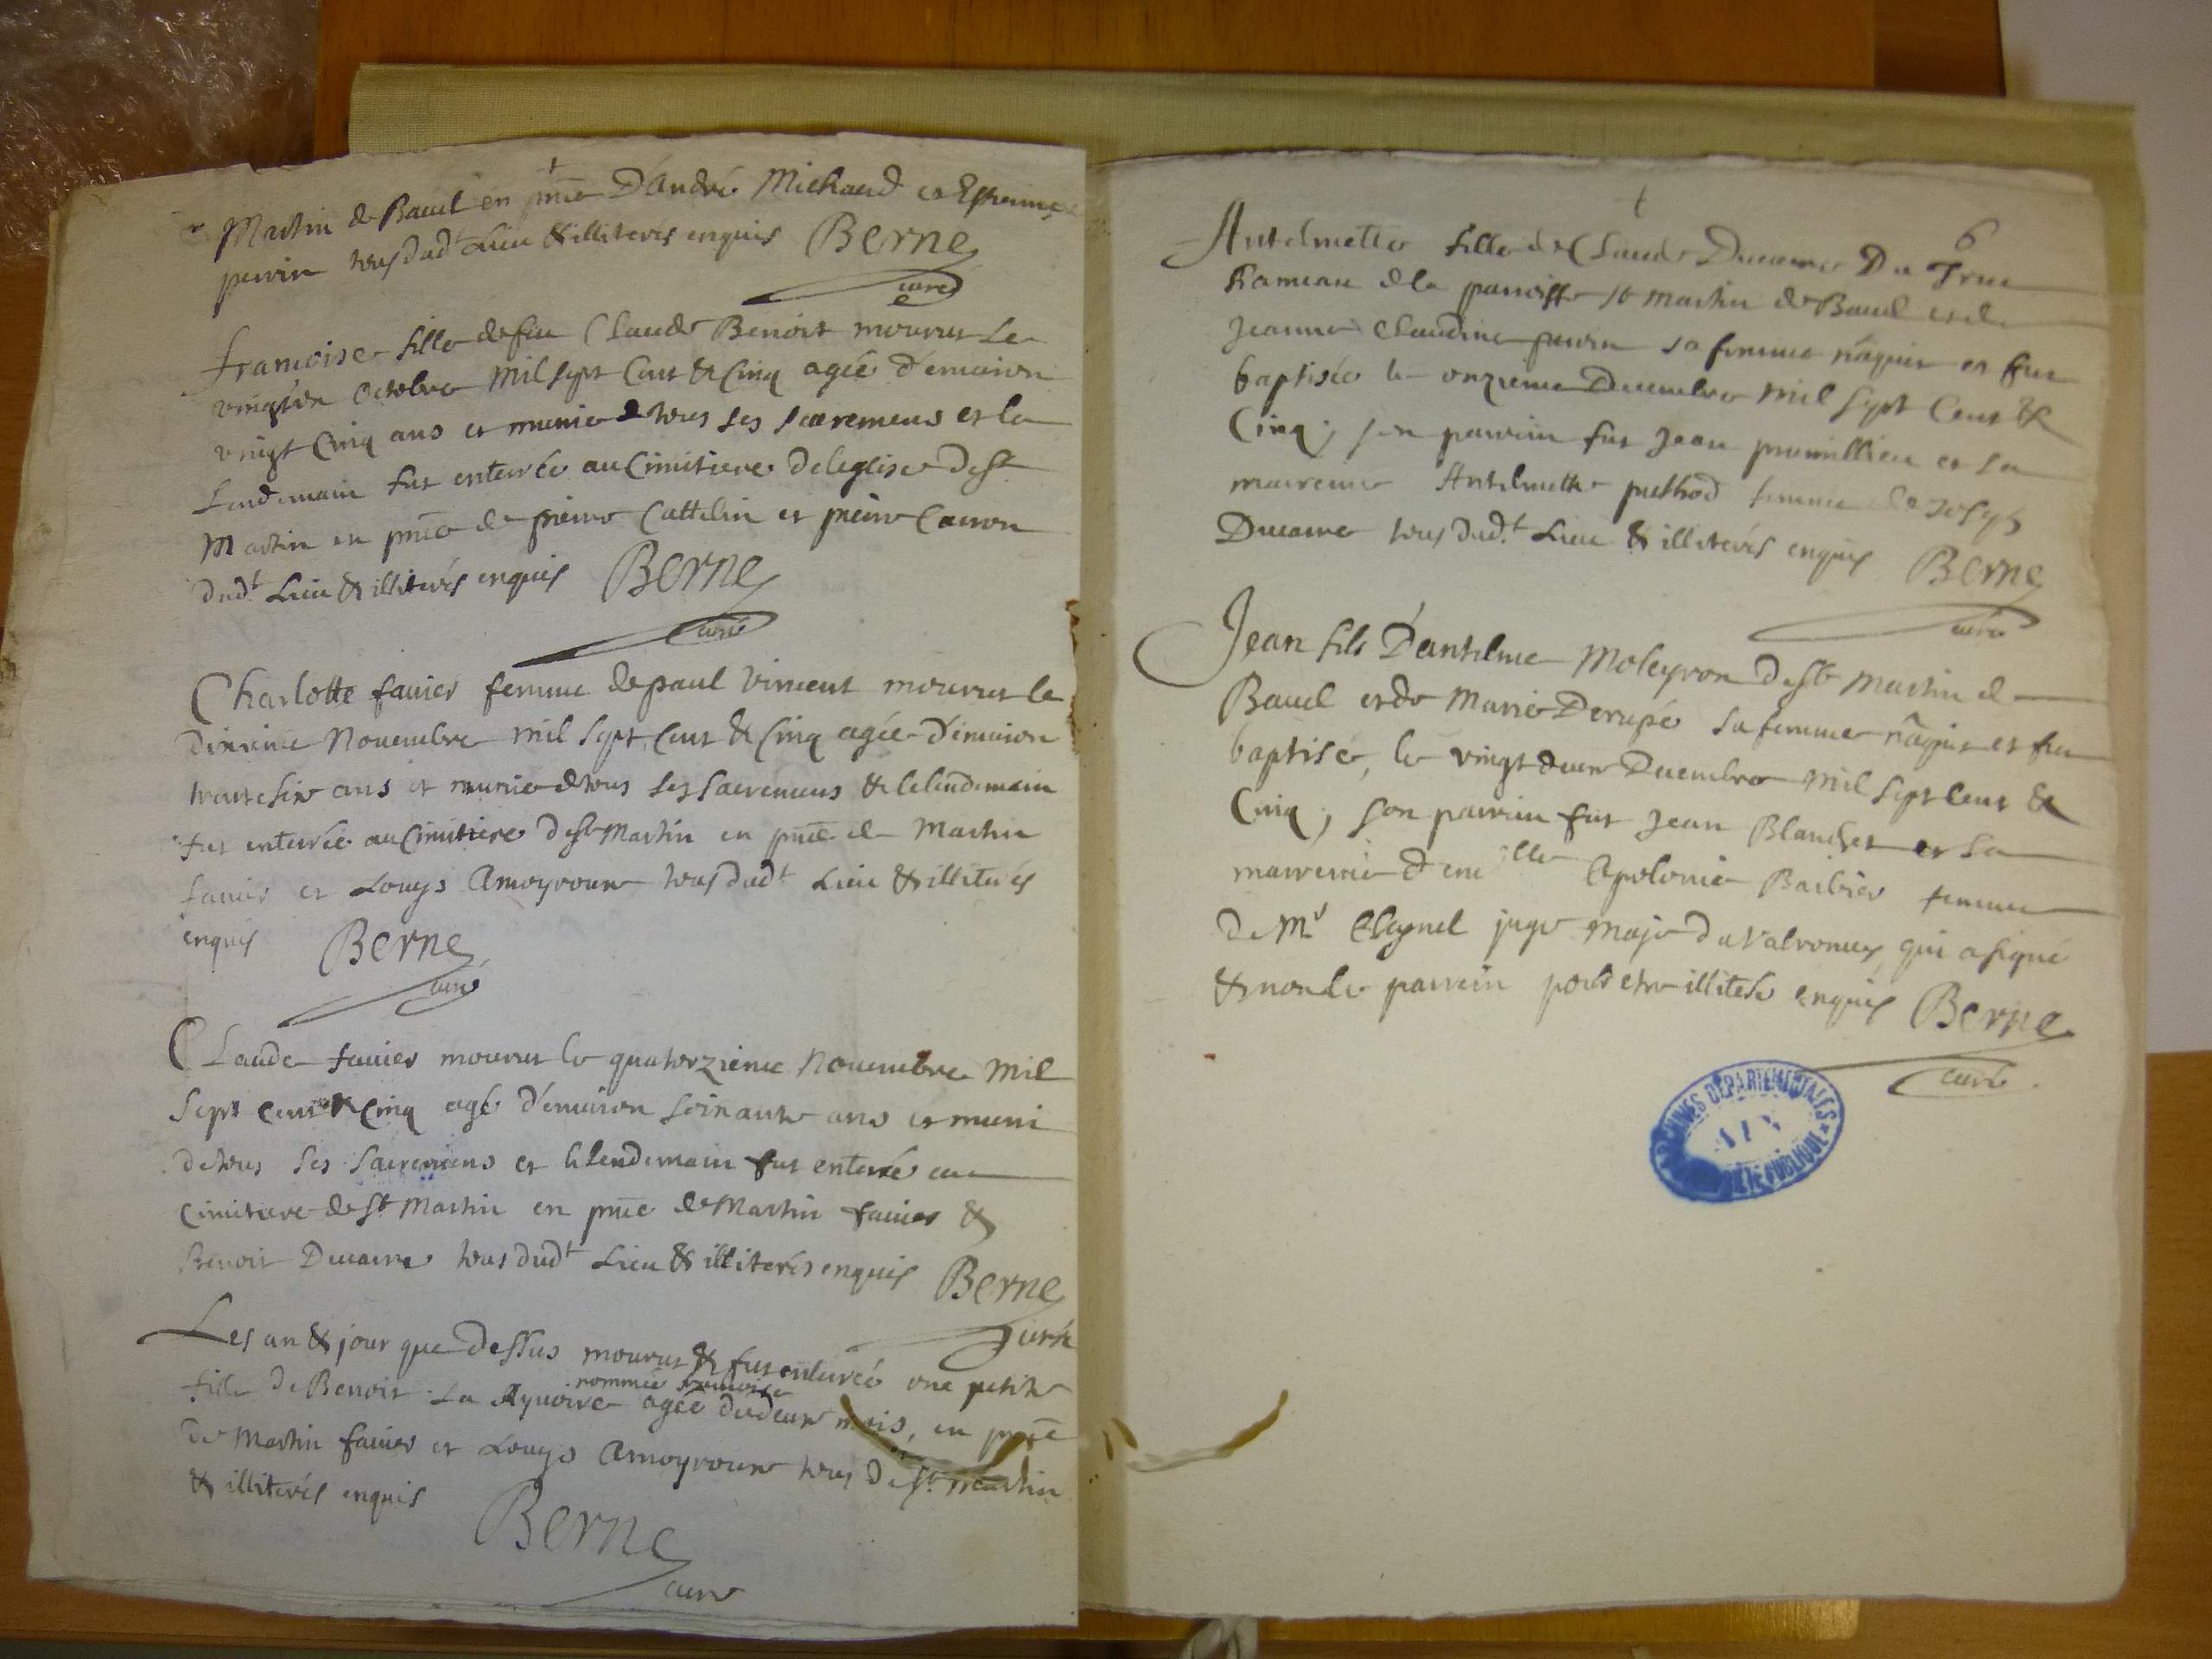 †
Martin de Bavel en pnce D'André Michaud et Estienne
perrin tous dudt Lieu & illiterés enquis Berne
curé
francoise fille de feu Claude Benoist mourut Le
vingt un Octobre Mil sept Cent & Cinq agée d'environ
vingt Cinq ans et munie de tous ses sacremens et le
Lendemain fut enterrée au Cimitiere de leglise de st
Martin en pnce de pierre Cattelin et pierre Carron
dudt Lieu & illiterés enquis Berne
curé
Charlotte favier femme de paul vincent mourut le
dixieme Novembre mil sept Cent & Cinq agée d'environ
trente six ans et munie de tous ses sacremens & le lendemain
fut enterrée au Cimitiere de st Martin en pnce de Martin
favier et Louys Amoyroux tous dudt Lieu & illiterés
enquis Berne
curé
Claude favier mourut le quatorzieme Novembre Mil
Sept cent & Cinq agé d'environ soixante ans et muni
de tous ses sacremens et le lendemain fut enterré au
Cimitiere de st Martin en pnce de Martin favier &
Benoit Ducaire tous dudt Lieu & illiterés enquis Berne
curé
Les an & jour que dessus mourut & fut enterrée une petite
nommée
fille de Benoit agée de deux mois, en pnce
de Martin favier et Louys Amoyroux tous de st Martin
& illiterés enquis
Berne
curé
†
6
Antelmette fille de Claude Ducaire Du
Rameau de la parroisse st Martin de Bavel et de
Jeanne Claudine perrin sa femme nâquit et fut
baptisée le onzieme Decembre Mil sept Cent &
Cinq; son parrain fut Jean promillieu et sa
marreine Antelmette femme de Joseph
Ducaire tous dudt Lieu & illiterés enquis Berne
curé
Jean fils D'antelme Moleyron de st Martin de
Bavel et de Marie Derupé sa femme nâquit et fut
baptisé, le vingt deux Decembre Mil sept Cent &
Cinq; son parrain fut Jean Blanchet et sa
marreine Demlle Apolonie Barbier femme
de Mr juge Maje de Valromey, qui a signé
& non le parrain pour etre illiteré enquis Berne
curé
ARCHIVES DEPARTEMENTALES